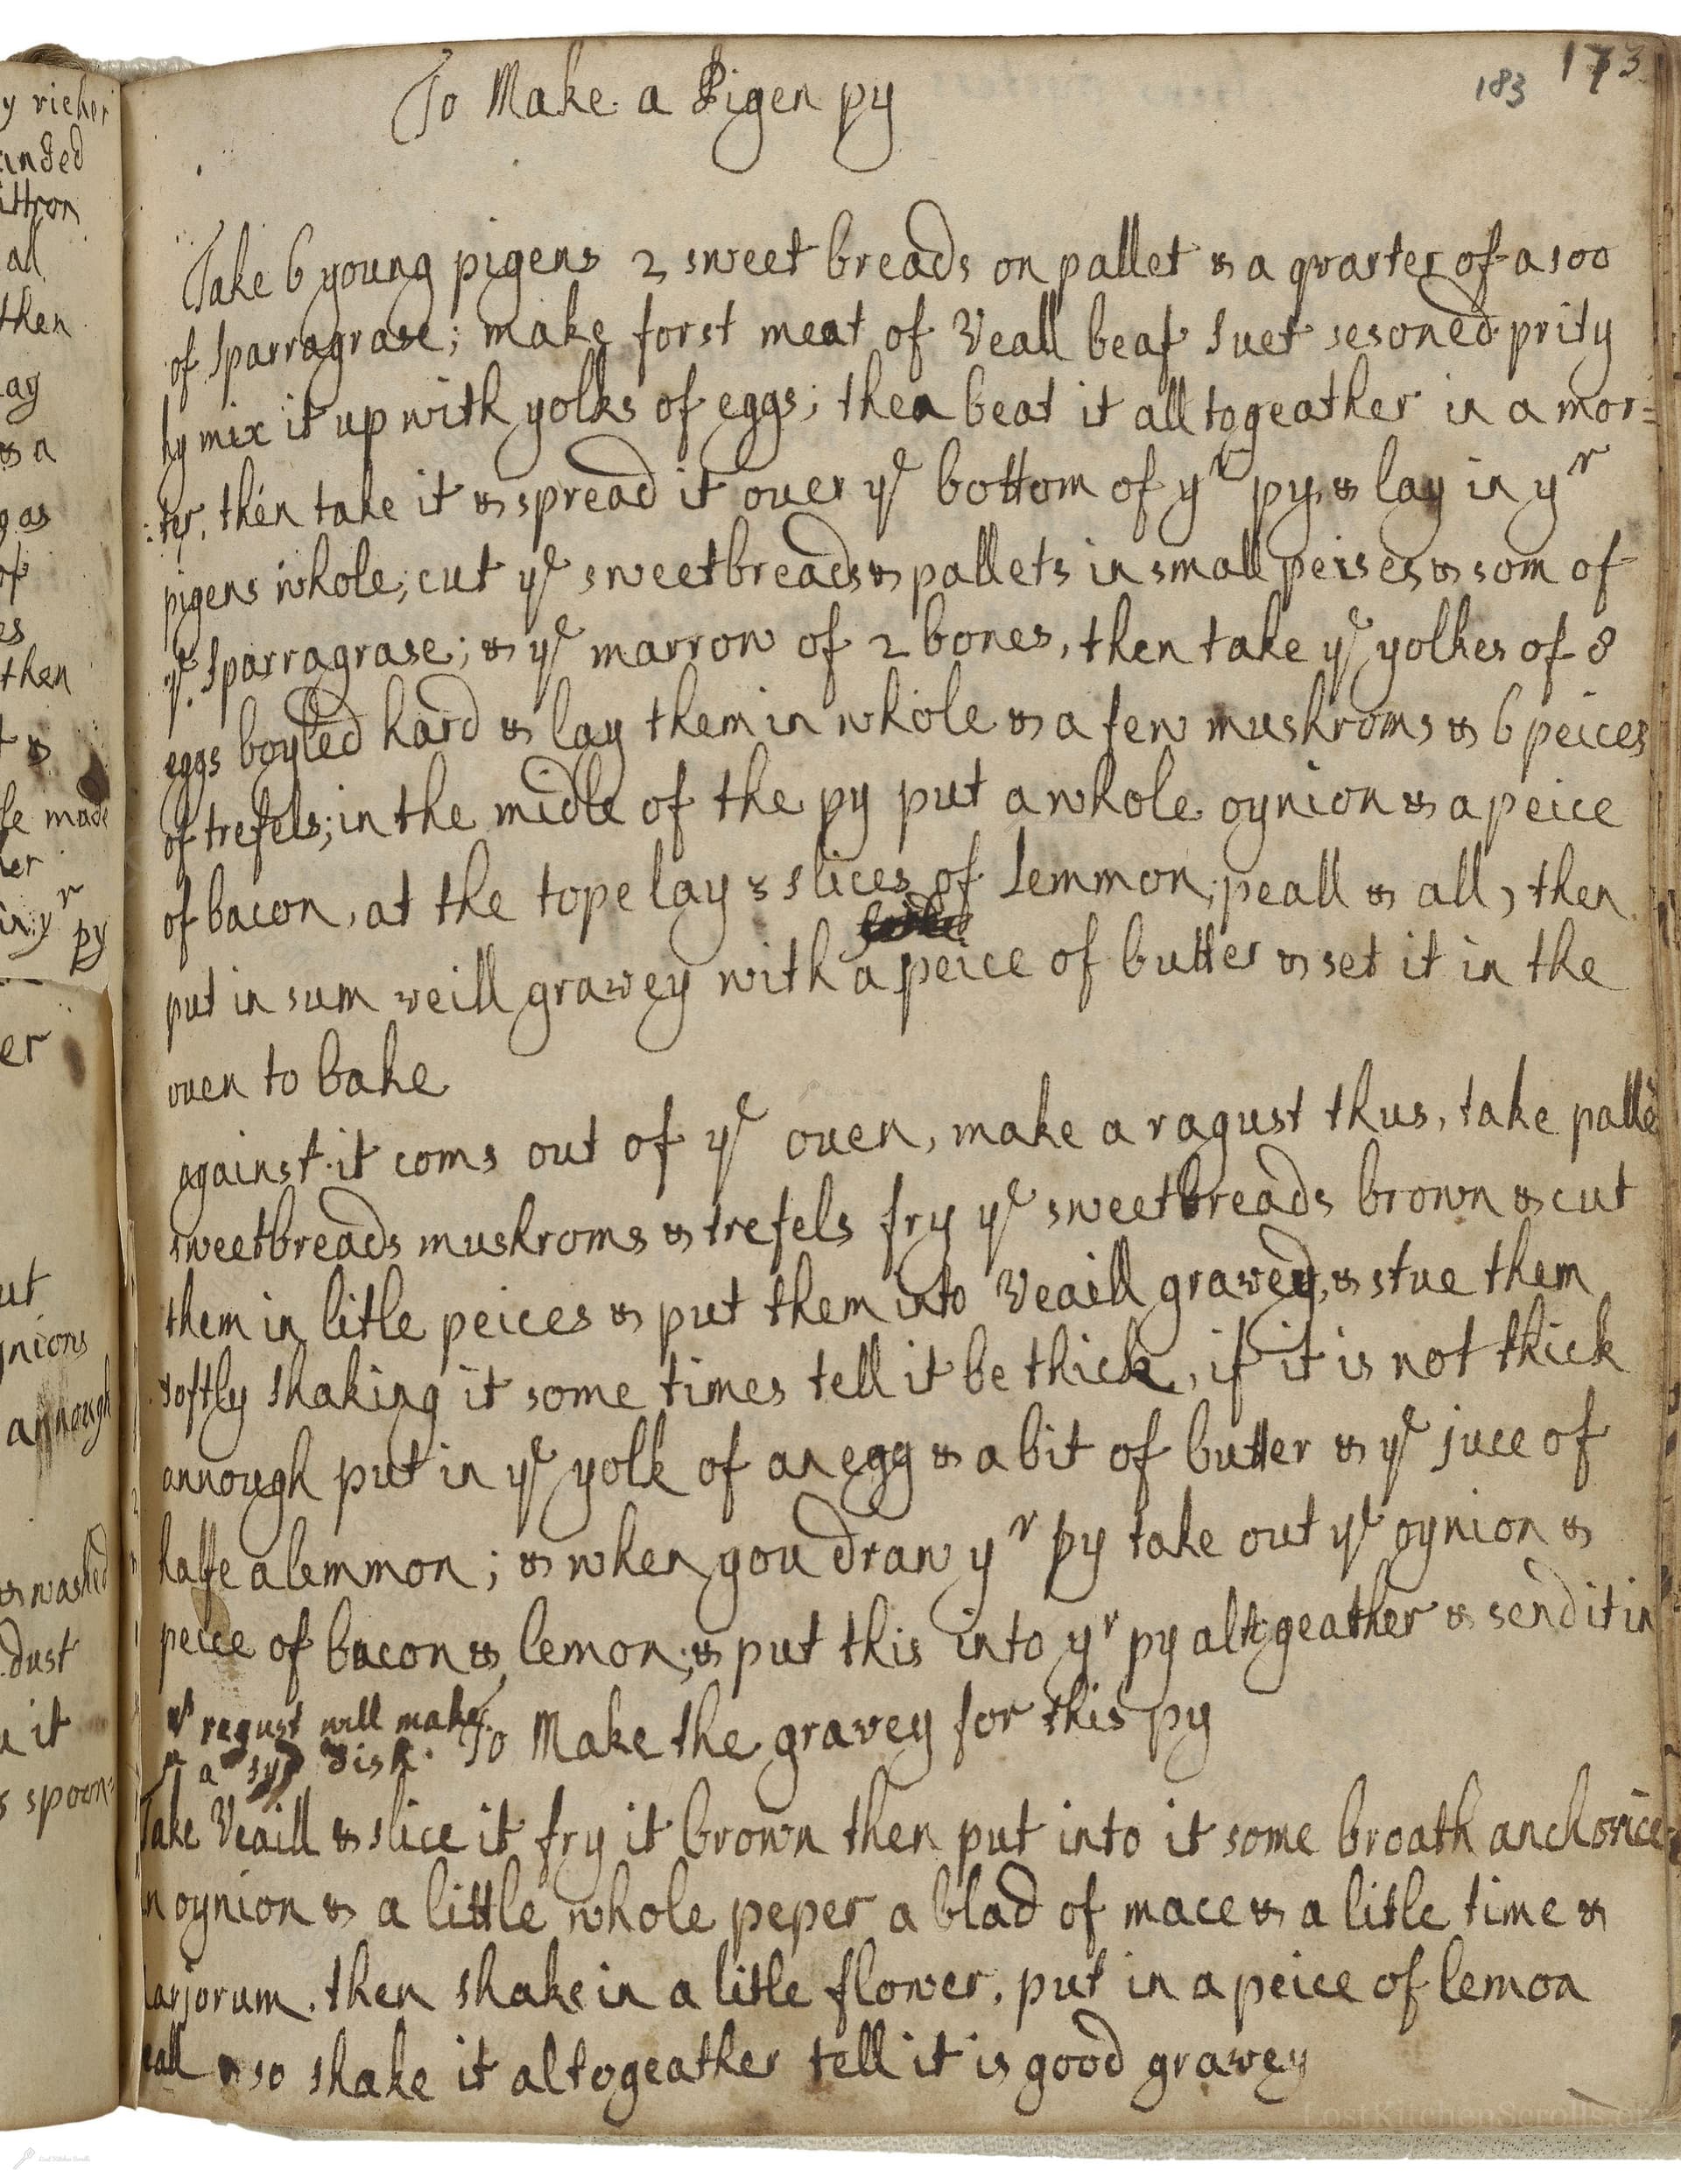 To Make a Pigen py
183 173
Take 6 young pigens 2 sweet breads on pallet & a quarter of a 100
of Sparragrase; make forst meat of Veall beaf suet sesoned prity
hy mix it up with yolks of eggs; then beat it all togeather in a mor=
:ter, then take it & spread it ouer yᵉ bottom of yʳ py & lay in yʳ
pigens whole; cut yᵉ sweetbreads & pallets in small peises & som of
yᵉ Sparragrase; & yᵉ marrow of 2 bones, then take yᵉ yolkes of 8
eggs boyled hard & lay them in whole & a few mushroms & 6 peices
of trefels; in the midle of the py put a whole oynion & a peice
of bacon, at the tope lay slices of Lemmon, peall & all, then
put in sum veill gravey with a peice of butter & set it in the
ouen to bake
against it coms out of yᵉ ouen, make a ragust thus, take palle
sweetbreads mushroms & trefels fry yᵉ sweetbreads brown & cut
them in litle peices & put them into Veaill gravey, & stue them
softly shaking it some times tell it be thick, if it is not thick
annough put in yᵉ yolk of an egg & a bit of butter & yᵉ juce of
halfe a lemmon; & when you draw yʳ py take out yᵉ oynion &
peice of bacon & lemon; & put this into yʳ py altogeather & send it in
yᵉ ragust will make
a syd dish.
To Make the gravey for this py
Take Veaill & slice it fry it brown then put into it some broath anchovice
n oynion & a little whole peper a blad of mace & a litle time &
arjorum. then shake in a litle flower, put in a peice of lemon
eall & so shake it altogeather tell it is good gravey
y richer
anded
ittron
all
then
lay
& a
as
of
es
then
t &
le made
her
in yʳ py
er
ut
ynions
annough
& washed
dust
it
spoon=
LostKitchenScrolls.org
Lost Kitchen Scrolls